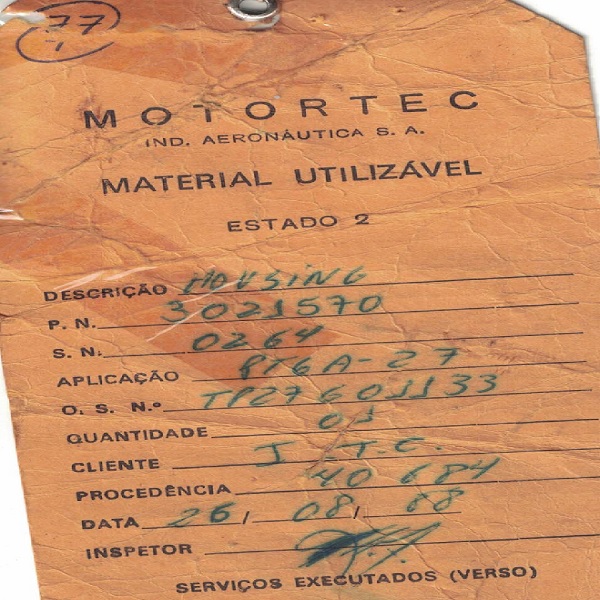 77
MOTORTEC
IND. AERONÁUTICA S. A.
MATERIAL UTILIZÁVEL
ESTADO 2
DESCRIÇÃO HOUSING
P. N. 3021570
S. N. 0264
APLICAÇÃO PT6A-27
O. S. N.º TP27601133
QUANTIDADE 01
CLIENTE I.T.C.
PROCEDÊNCIA 40684
DATA 26/08/88
INSPETOR
SERVIÇOS EXECUTADOS (VERSO)